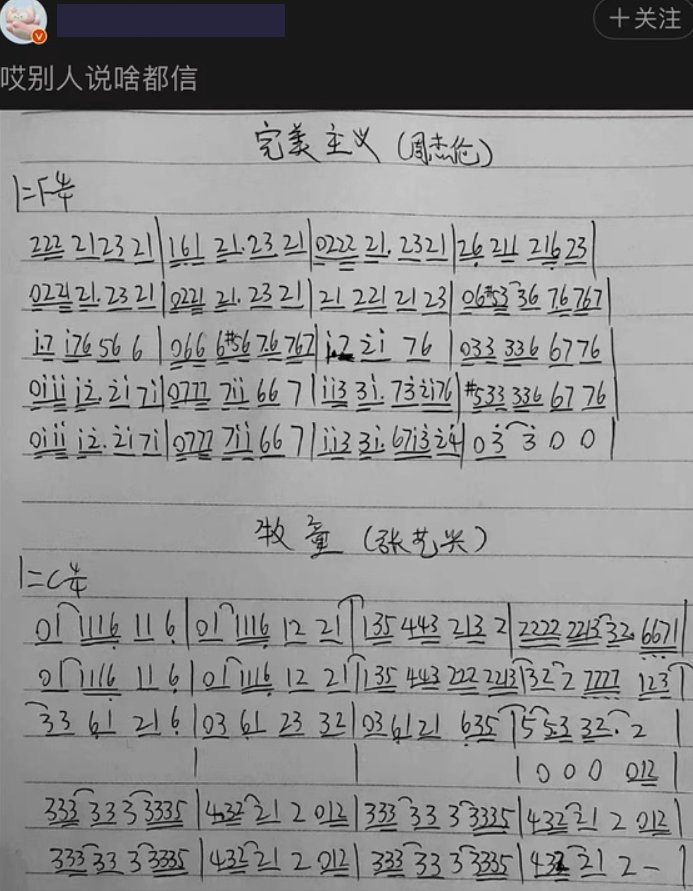 +关注
哎别人说啥都信
完美主义(周杰伦)
1=F 4/4
222 2123 21|161 21.23 21|0222 21.2321|26 211 21623|
0221 21.23 21|0221 21.23 21|21 221 21 23|06#53 36 76767|
i.7 i76 56 6|066 6#56 76 767|i.7 2i 76|033 336 6776|
0iii i2.2i 7i|0777 7ii 66 7|ii3 3i.732i76|#533 336 67 76|
0iii i2.2i7i|0777 7ii 66 7|ii3 3i.67i324|03 3 0 0|
牧童(张艺兴)
1=C 4/4
01 1116 11 6|01 1116 12 21|135 443 213 2|2222 2213 32.6671|
01 1116 11 6|01 1116 12 21|135 443 222 2213|32 2 7777 123|
33 61 21 6|03 61 23 32|03 61 21 635|5 5.3 32. 2|
| | |0 0 0 012|
333 33 3 3335|4.32 21 2 012|333 33 3 3335|432 21 2 012|
333 33 3 3335|432 21 2 012|333 33 3 3335|432 21 2 -|